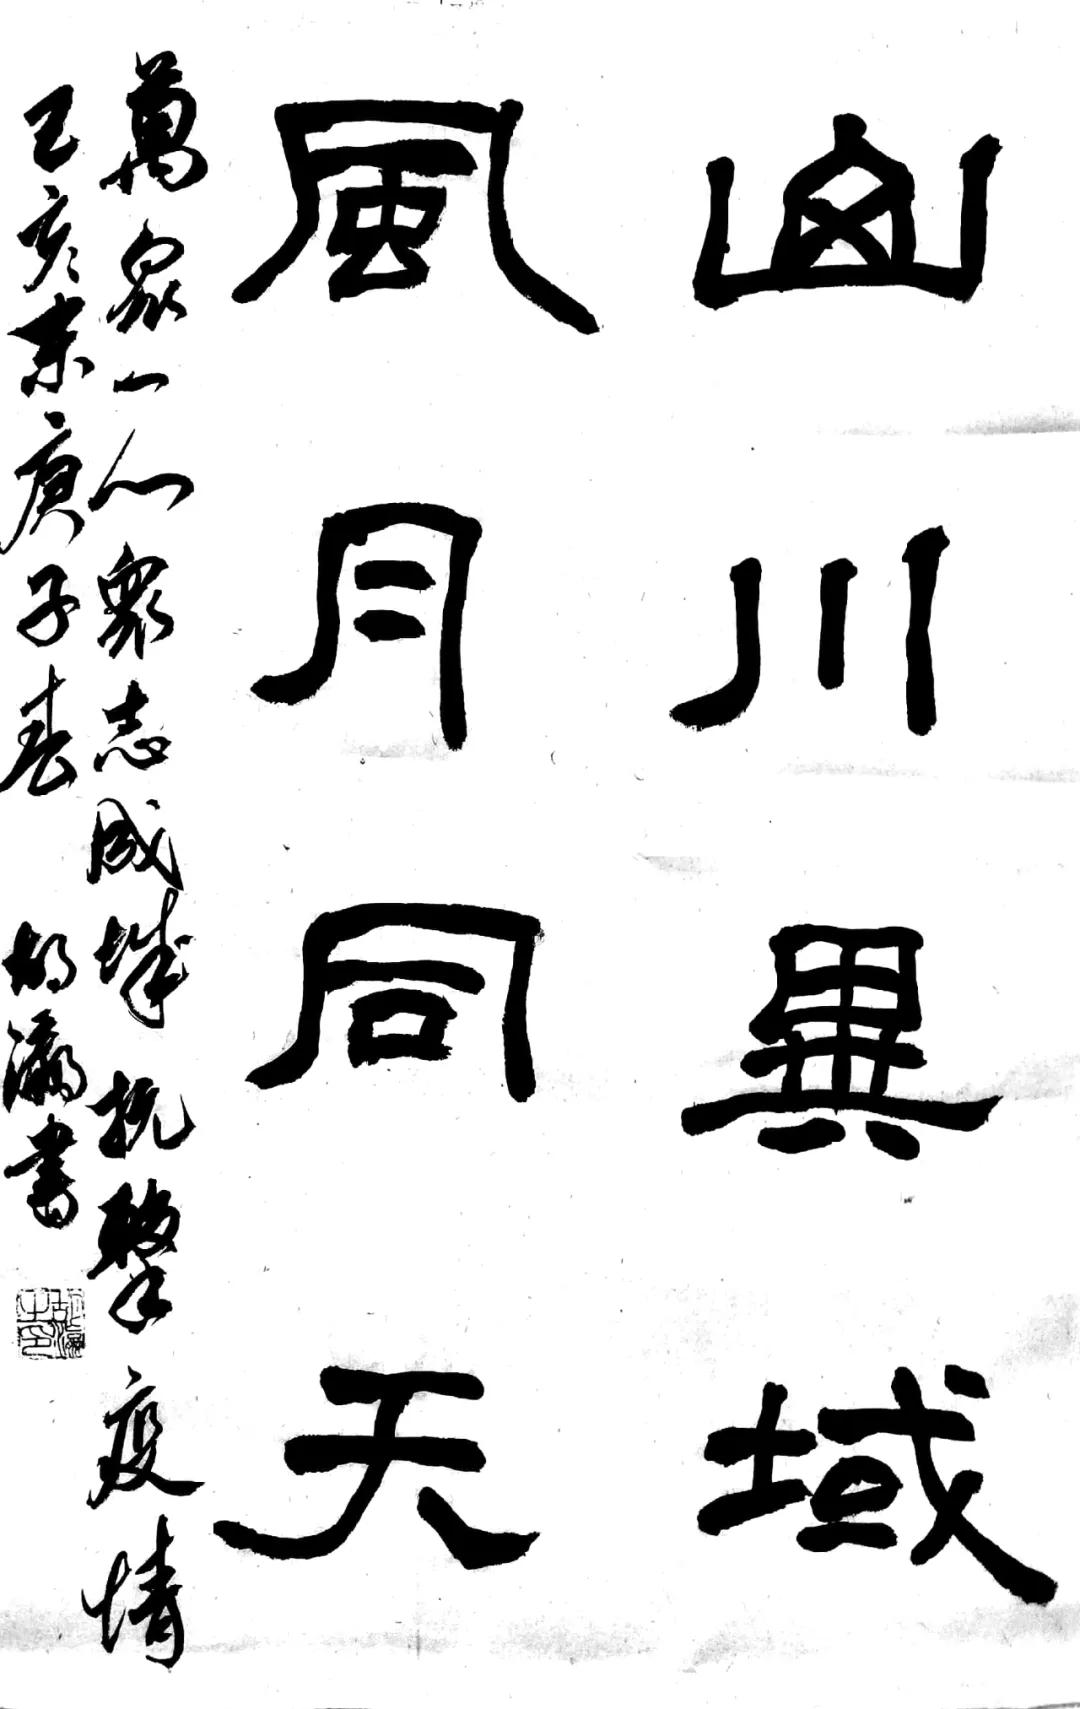 山川異域
風月同天
萬眾一心眾志成城抗擊疫情
己亥末庚子春 胡瀛書